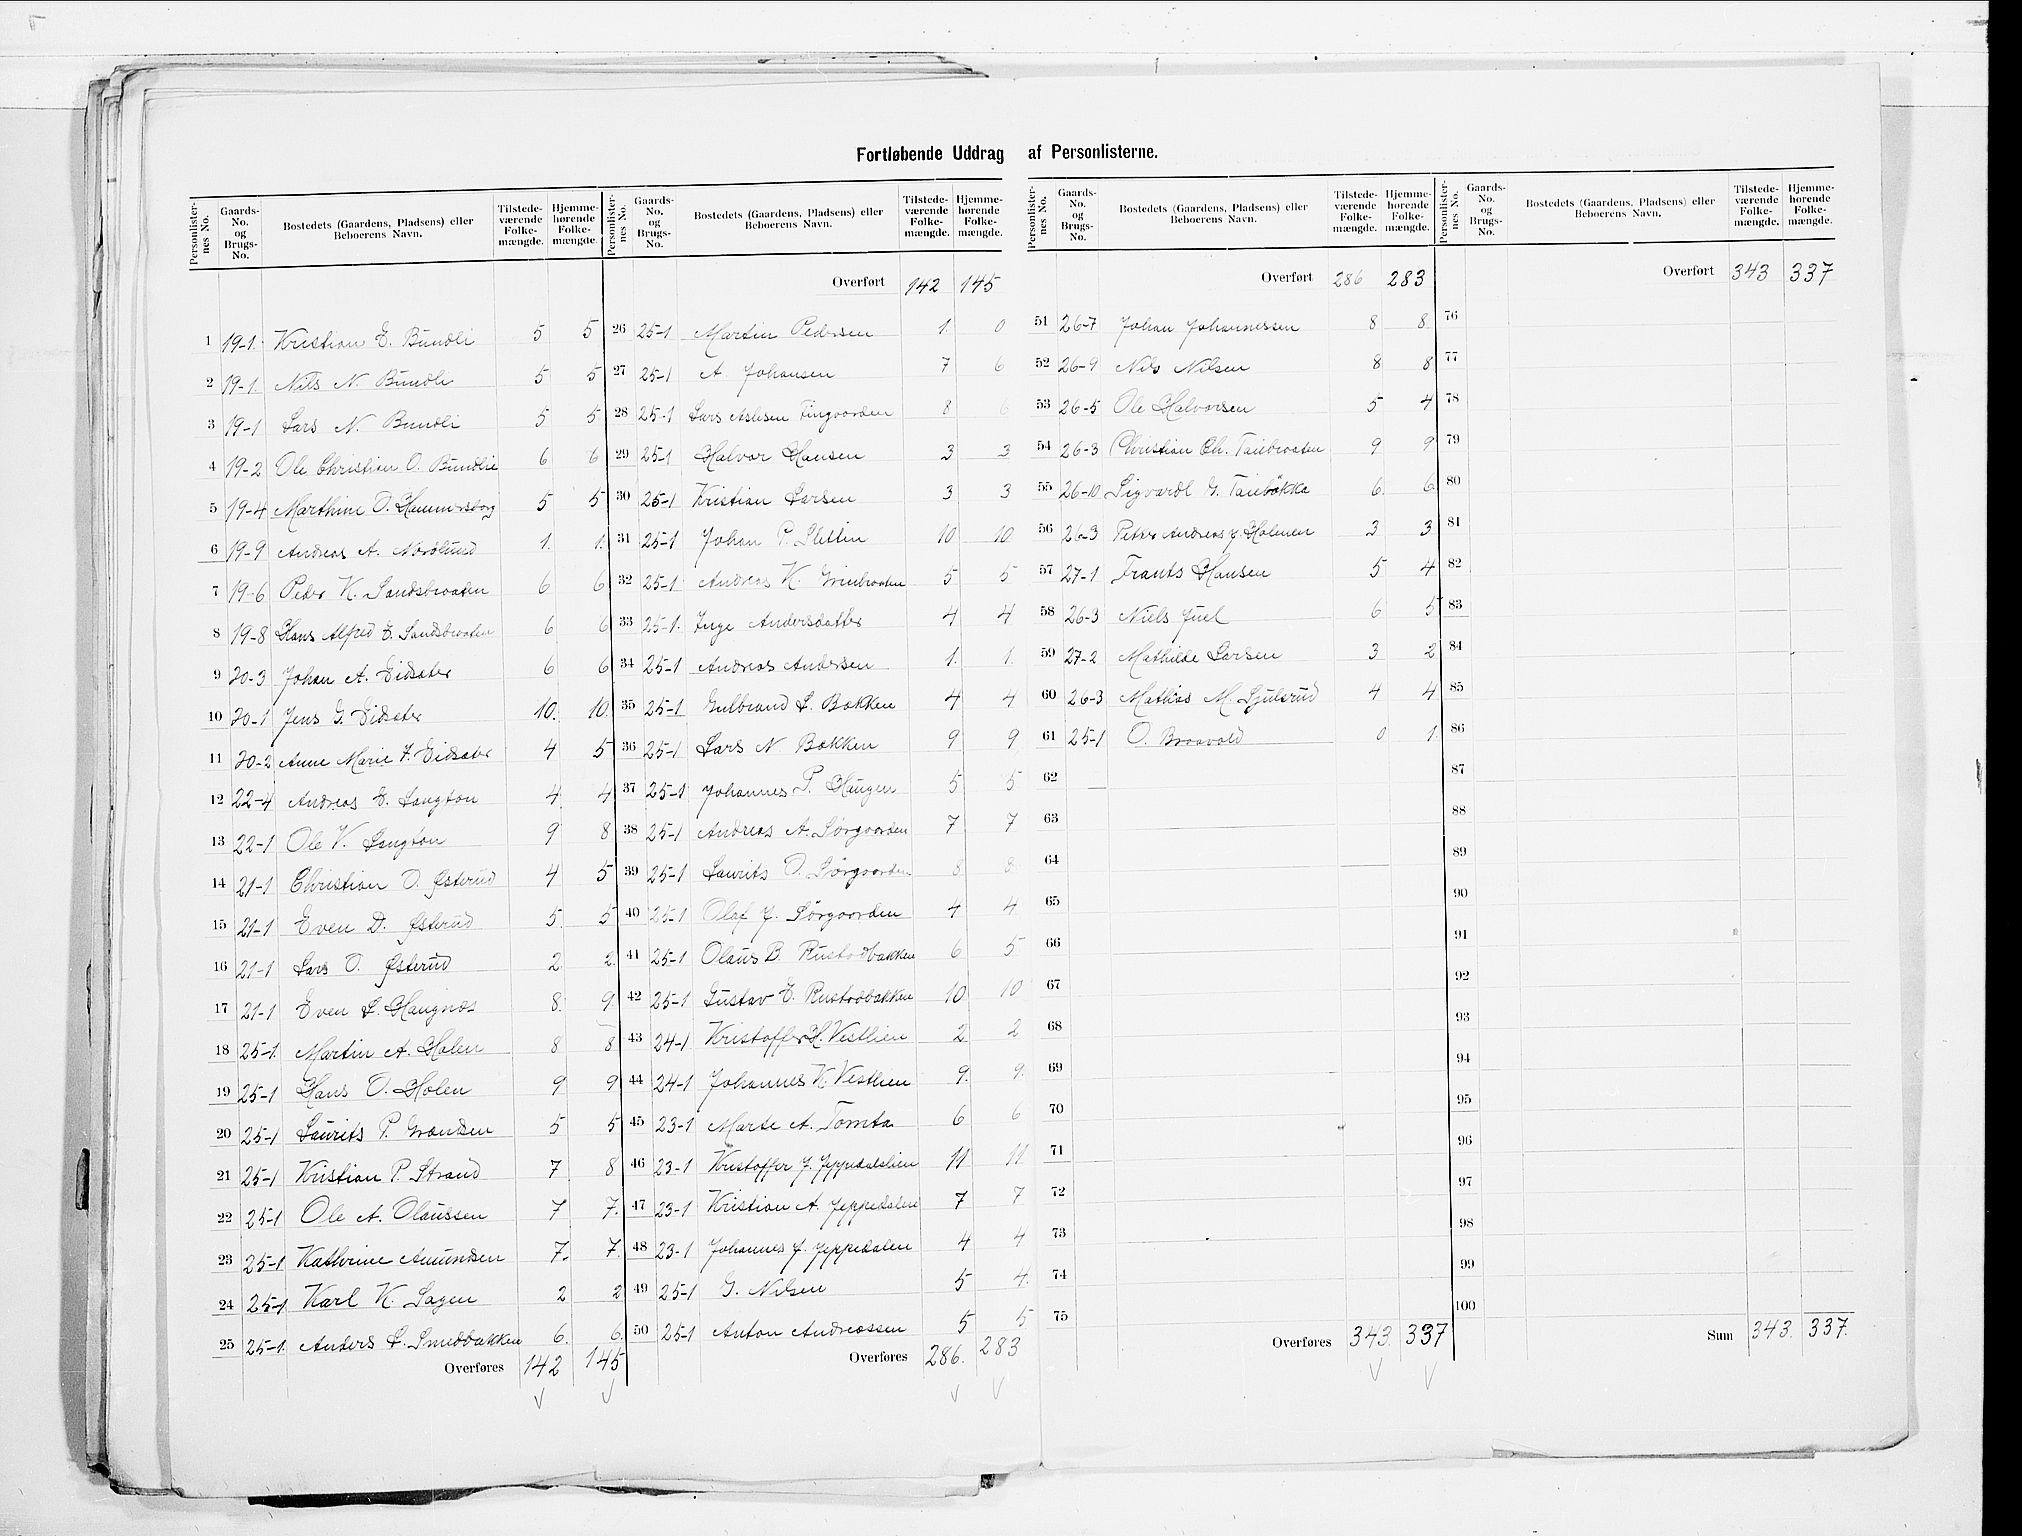 Fortløbende Uddrag af Personlisterne.
Personlister-nes No. Gaards-No. og Brugs-No. Bostedets (Gaardens, Pladsens) eller Beboerens Navn. Tilstede-værende Folke-mængde. Hjemme-hørende Folke-mængde.
1 19-1. Kristian E. Bundli 5 5
2 19-1. Nils N. Bundli 5 5
3 19-1 Lars N. Bundli 5 5
4 19-2 Ole Christian O. Bundlie 6 6
5 19-4 Marthine O. Hammersborg 5 5
6 19-9 Andreas A. Nordlund 1. 1.
7 19-6 Peder K. Sandsbraaten 6 6
8 19-8 Hans Alfred E. Sandsbraaten 6 6
9 20-3 Johan A. Eidsater 6 6
10 20-1 Jens G. Eidsater 10. 10.
11 20-2 Anne Marie F. Eidsater 4 5
12 22-4 Andreas E. Langton 4 4
13 22-1 Ole K. Langton 9 8
14 21-1 Christian O. Østerud 4 5
15 21-1 Even D. Østerud 5. 5
16 21-1 Lars O. Østerud 2 2
17 21-1 Even L. Haugnæs 8. 9
18 25-1. Martin A. Holen 8 8
19 25-1 Hans O. Holen 9 9
20 25-1 Laurits P. Granden 5 5
21 25-1 Kristian P. Strand 7 8
22 25-1 Ole A. Olaussen 7 7.
23 25-1 Kathrine Amundsen 7. 7.
24 25-1 Karl K. Hagen 2 2
25 25-1. Anders L. Smedbakken 6. 6.
Overføres 142 145
Personlister-nes No. Gaards-No. og Brugs-No. Bostedets (Gaardens, Pladsens) eller Beboerens Navn. Tilstede-værende Folke-mængde. Hjemme-hørende Folke-mængde.
Overført 142 145
26 25-1 Martin Pedersen 1. 0
27 25-1 A. Johansen 7 6
28 25-1 Lars Aslesen Tingaarden 8 6
29 25-1 Halvor Hansen 3 3
30 25-1 Kristian Larsen 3 3
31 25-1 Johan P. Slettin 10 10
32 25-1. Andreas K. Grinbraaten 5 5
33 25-1. Inge Andersdatter 4 4
34 25-1 Andreas Andersen 1. 1.
35 25-1 Gulbrand L. Bakken 4 4
36 25-1 Lars N. Bakken 9 9
37 25-1 Johannes P. Haugen 5 5
38 25-1 Andreas A. Sørgaarden 7 7
39 25-1 Laurits O. Sørgaarden 8 8
40 25-1 Olaf J. Sørgaarden 4 4
41 25-1 Olaus B. Rustadbakken 6 5
42 25-1 Gustav E. Rustadbakken 10 10
43 24-1 Kristoffer H. Vestlien 2 2
44 24-1 Johannes K. Vestlien 9. 9.
45 23-1 Marte A. Tomta 6 6
46 23-1 Kristoffer J. Jeppedalslien 11 11
47 23-1 Kristian A. Jeppedalen 7 7
48 23-1 Johannes J. Jeppedalen 4 4
49 25-1 G. Nilsen 5 4.
50 25-1 Anton Andreassen 5 5
Overføres 286. 283
Personlister-nes No. Gaards-No. og Brugs-No. Bostedets (Gaardens, Pladsens) eller Beboerens Navn. Tilstede-værende Folke-mængde. Hjemme-hørende Folke-mængde.
Overført 286 283
51 26-7 Johan Johannessen 8 8
52 26-9 Nils Nilsen 8 8
53 26-5 Ole Halvorsen 5 4
54 26-3 Christian Ch. Taiebraaten 9 9
55 26-10 Sigvardl G. Taiebakka 6. 6
56 26-3 Peter Andreas J. Holmen 3 3
57 27-1 Frants Hansen 5 4
58 26-3 Niels Juel 6 5
59 27-2 Mathilde Larsen 3 2
60 26-3 Mathias M. Sjulsrud 4 4
61 25-1 O. Braavold 0 1.
62
63
64
65
66
67
68
69
70
71
72
73
74
75
Overføres 343. 337
Personlister-nes No. Gaards-No. og Brugs-No. Bostedets (Gaardens, Pladsens) eller Beboerens Navn. Tilstede-værende Folke-mængde. Hjemme-hørende Folke-mængde.
Overført 343 337
76
77
78
79
80
81
82
83
84
85
86
87
88
89
90
91
92
93
94
95
96
97
98
99
100
Sum 343. 337.